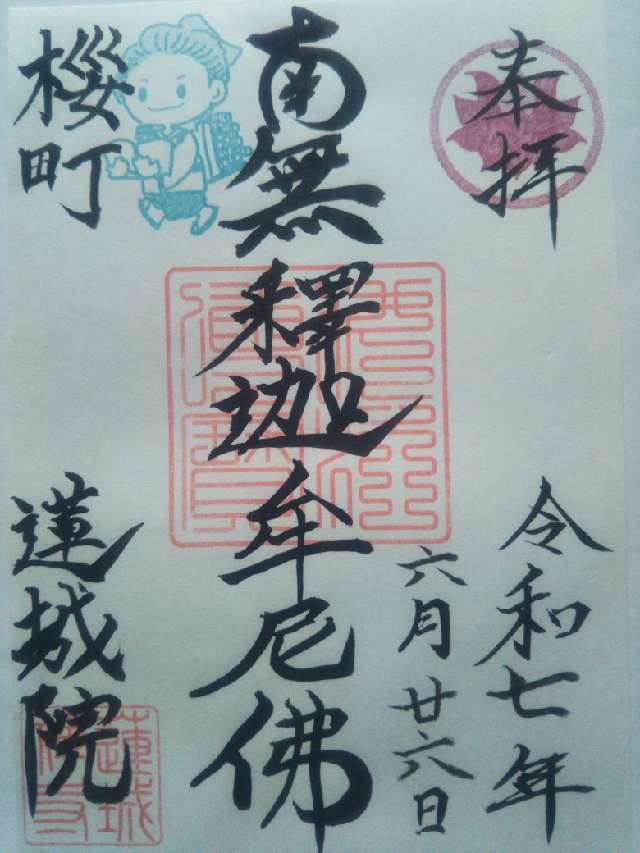 奉拝
令和七年
六月廿六日
南無釋迦牟尼佛
櫻町
蓮城院